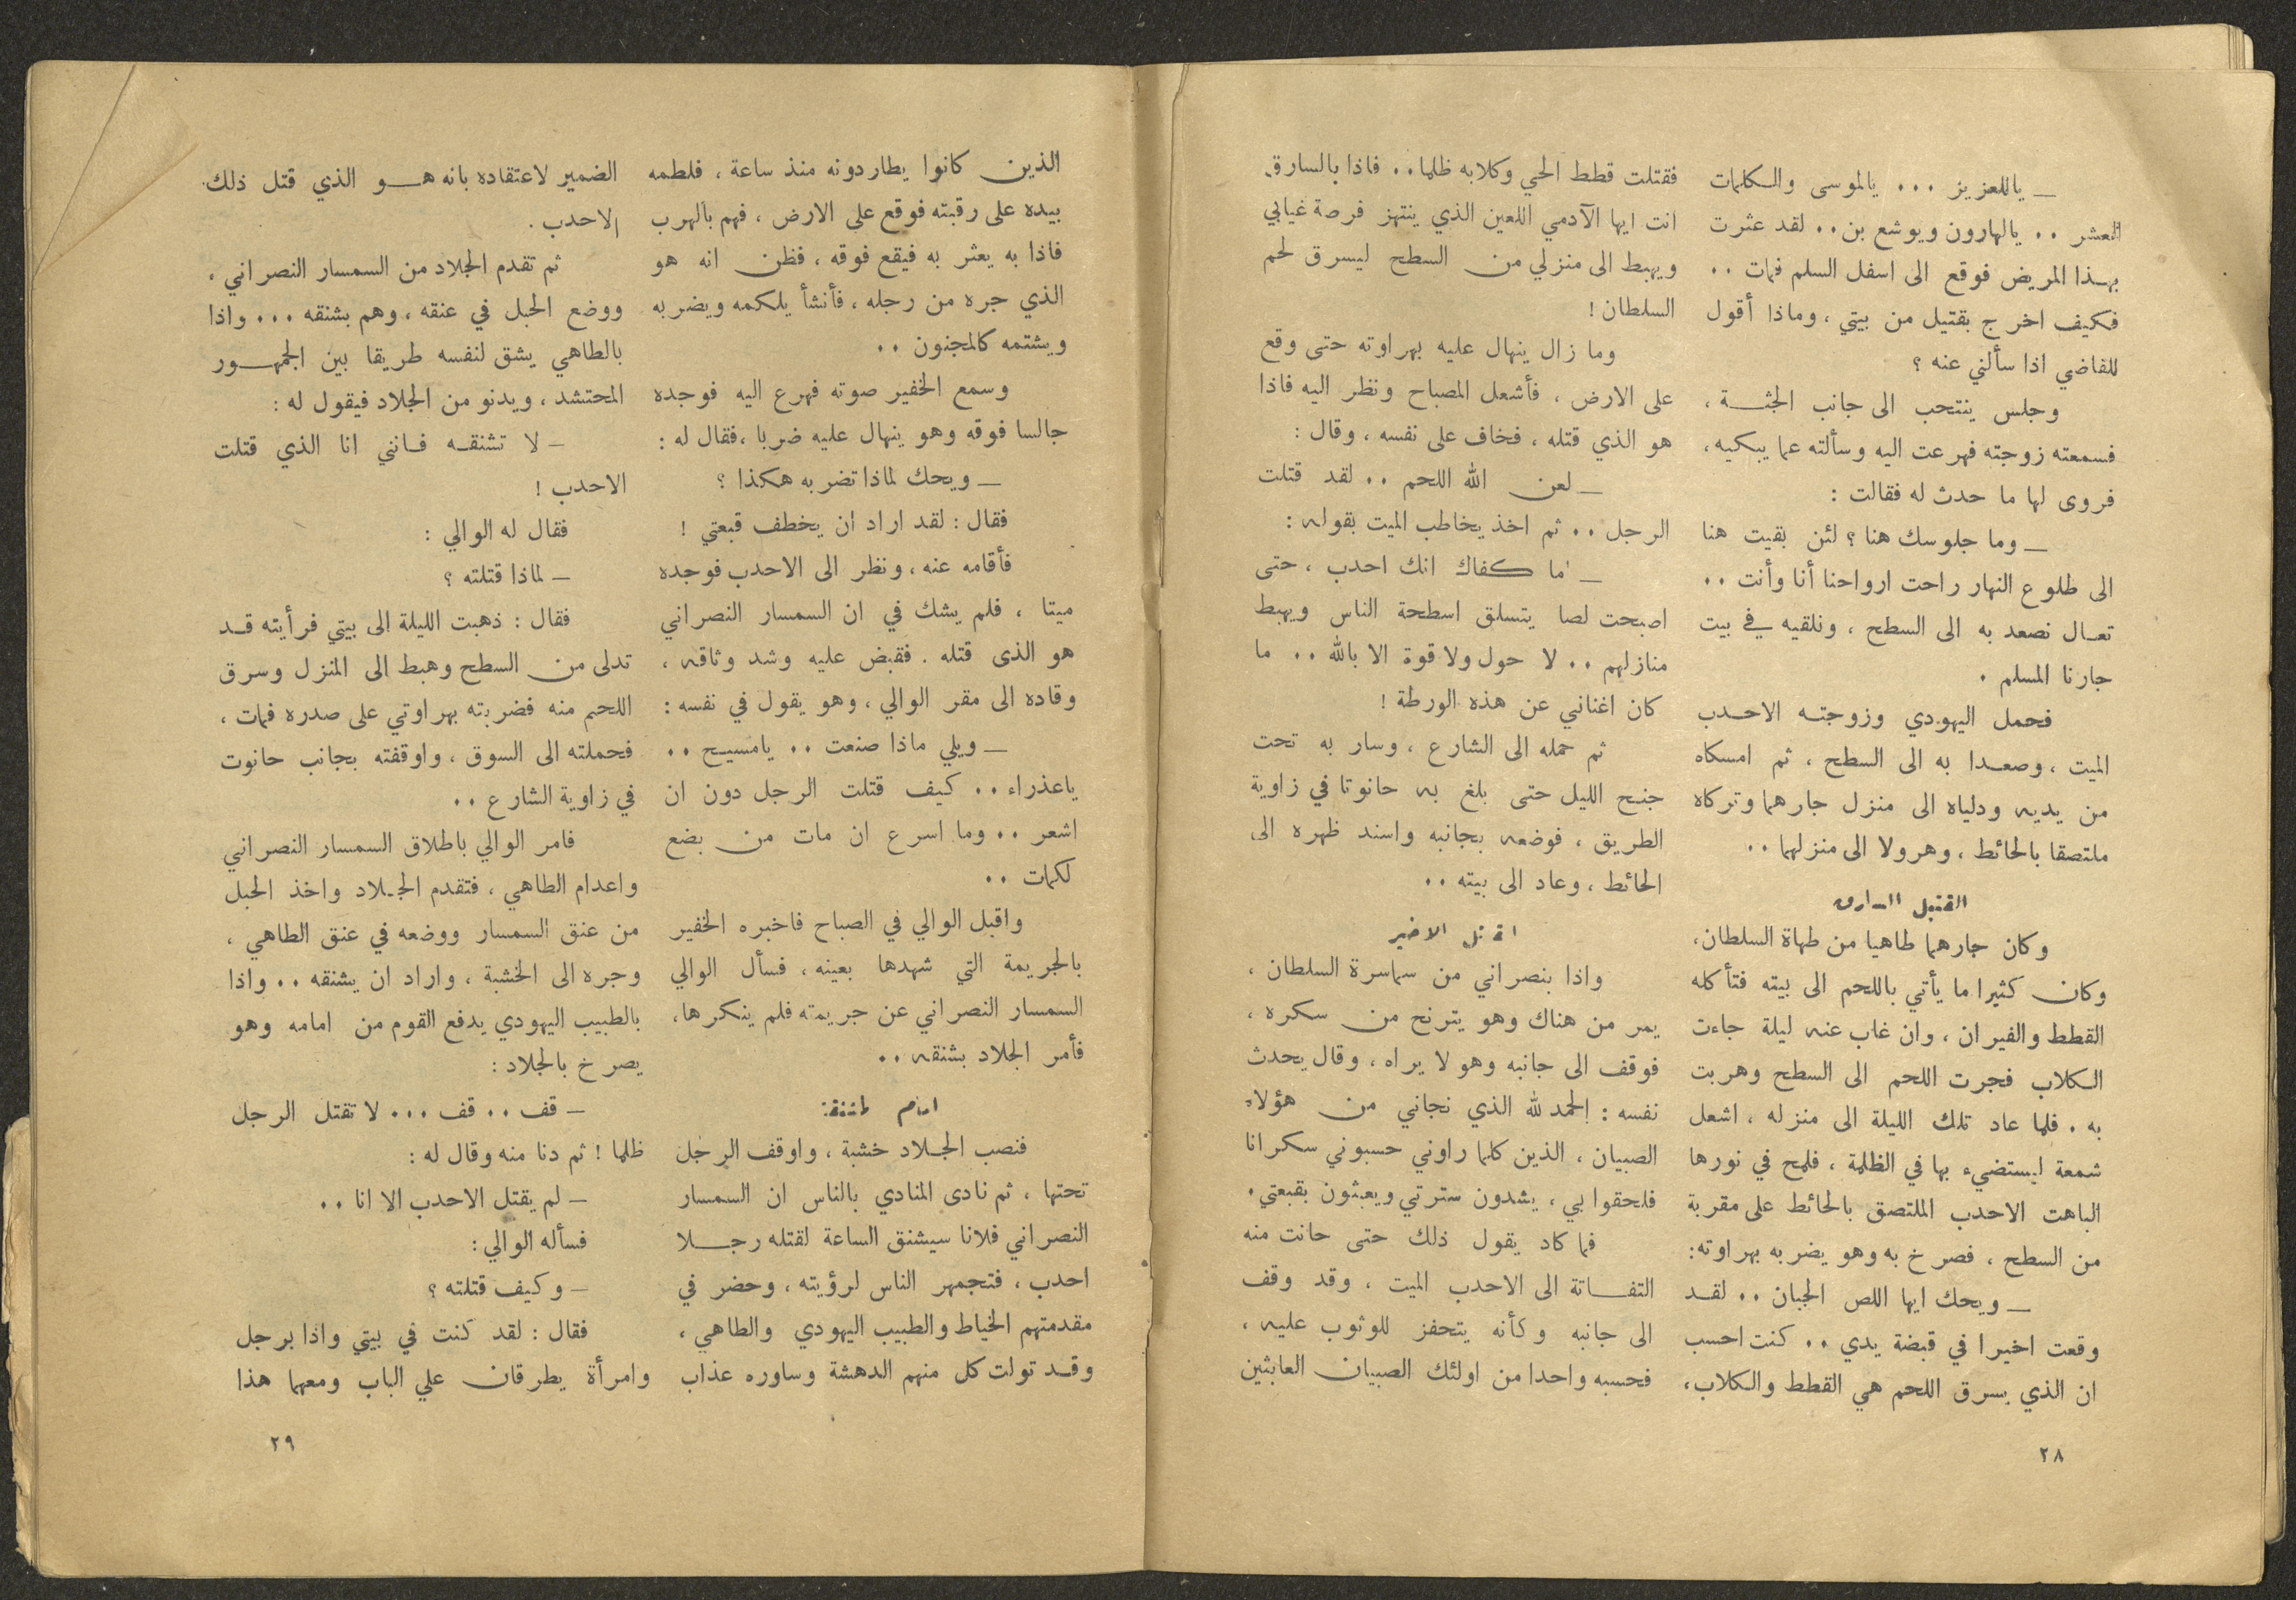 ــ ياللعزيز ... يالموسى والكلمات
العشر .. يالهارون ويوشع بن.. لقد عثرت
بهذا المريض فوقع الى اسفل السلم فمات ..
فكيف اخرج بقتيل من بيتي ، وماذا أقول
للقاضي اذا سألني عنه ؟
وجلس ينتحب الى جانب الجثة ،
فسمعته زوجته فهرعت اليه وسألته عما يبكيه،
فروى لها ما حدث له فقالت :
ــ وما جلوسك هنا ؟ لئن بقيت هنا
الى طلوع النهار راحت ارواحنا أنا وأنت ..
تعال نصعد به الى السطح ، ونلقيه في بيت
جارنا المسلم .
فحمل اليهودي وزوجته الاحدب
الميت ، وصعدا به الى السطح ، ثم امسكاه
من يديه ودلياه الى منزل جارهما وتركاه
ملتصقا بالحائط ، وهرولا الى منزلهما ..
القتيل السارق
وكان جارهما طاهيا من طهاة السلطان،
وكان كثيرا ما يأتي باللحم الى بيته فتأكله
القطط والفيران ، وان غاب عنه ليلة جاءت
الكلاب فجرت اللحم الى السطح وهربت
به . فلما عاد تلك الليلة الى منزله ، اشعل
شمعة ليستضيء بها في الظلمة ، فلمح في نورها
الباهت الاحدب الملتصق بالحائط على مقربة
من السطح ، فصرخ به وهو يضربه بهراوته:
ــ ويحك ايها اللص الجبان .. لقد
وقعت اخيرا في قبضة يدي .. كنت احسب
ان الذي يسرق اللحم هي القطط والكلاب،
فقتلت قطط الحي وكلابه ظلما.. فاذا بالسارق
انت ايها الآدمي اللعين الذي ينتهز فرصة غيابي
ويهبط الى منزلي من السطح ليسرق لحم
السلطان !
وما زال ينهال عليه بهراوته حتى وقع
على الارض ، فأشعل المصباح ونظر اليه فاذا
هو الذي قتله ، فخاف على نفسه ، وقال :
ــ لعن الله اللحم .. لقد قتلت
الرجل .. ثم اخذ يخاطب الميت بقوله :
ــ اما كفاك انك احدب ، حتى
اصبحت لصا يتسلق اسطحة الناس ويهبط
منازلهم .. لا حول ولا قوة الا بالله .. ما
كان اغناني عن هذه الورطة !
ثم حمله الى الشارع ، وسار به تحت
جنح الليل حتى بلغ به حانوتا في زاوية
الطريق ، فوضعه بجانبه واسند ظهره الى
الحائط ، وعاد الى بيته ..
القاتل الاخير
واذا بنصراني من سماسرة السلطان ،
يمر من هناك وهو يترنح من سكره ،
فوقف الى جانبه وهو لا يراه ، وقال يحدث
نفسه : الحمد لله الذي نجاني من هؤلاء
الصبيان ، الذين كلما راوني حسبوني سكرانا
فلحقوا بي ، يشدون سترتي ويعبثون بقبعتي.
فما كاد يقول ذلك حتى حانت منه
التفاتة الى الاحدب الميت ، وقد وقف
الى جانبه وكأنه يتحفز للوثوب عليه ،
فحسبه واحدا من اولئك الصبيان العابثين
٢٨
الذين كانوا يطاردونه منذ ساعة ، فلطمه
بيده على رقبته فوقع على الارض ، فهم بالهرب
فاذا به يعثر به فيقع فوقه ، فظن انه هو
الذي جره من رجله ، فأنشأ يلكمه ويضربه
ويشتمه كالمجنون ..
وسمع الخفير صوته فهرع اليه فوجده
جالسا فوقه وهو ينهال عليه ضربا ،فقال له :
ــ ويحك لماذا تضربه هكذا ؟
فقال : لقد اراد ان يخطف قبعتي !
فأقامه عنه ، ونظر الى الاحدب فوجده
ميتا ، فلم يشك في ان السمسار النصراني
هو الذي قتله . فقبض عليه وشد وثاقه ،
وقاده الى مقر الوالي ، وهو يقول في نفسه :
ــ ويلي ماذا صنعت .. يامسيح ..
ياعذراء .. كيف قتلت الرجل دون ان
اشعر .. وما اسرع ان مات من بضع
لكمات ..
واقبل الوالي في الصباح فاخبره الخفير
بالجريمة التي شهدها بعينه ، فسأل الوالي
السمسار النصراني عن جريمته فلم ينكرها،
فأمر الجلاد بشنقه ..
امام المشنقة
فنصب الجلاد خشبة ، واوقف الرجل
تحتها ، ثم نادى المنادي بالناس ان السمسار
النصراني فلانا سيشنق الساعة لقتله رجلا
احدب ، فتجمهر الناس لرؤيته ، وحضر في
مقدمتهم الخياط والطبيب اليهودي والطاهي ،
وقد تولت كل منهم الدهشة وساوره عذاب
الضمير لاعتقاده بانه هو الذي قتل ذلك
الاحدب .
ثم تقدم الجلاد من السمسار النصراني ،
ووضع الحبل في عنقه ، وهم بشنقه ... واذا
بالطاهي يشق لنفسه طريقا بين الجمهور
المحتشد ، ويدنو من الجلاد فيقول له :
ــ لا تشنقه فانني انا الذي قتلت
الاحدب !
فقال له الوالي :
ــ لماذا قتلته ؟
فقال : ذهبت الليلة الى بيتي فرأيته قد
تدلى من السطح وهبط الى المنزل وسرق
اللحم منه فضربته بهراوتي على صدره فمات ،
فحملته الى السوق ، واوقفته بجانب حانوت
في زاوية الشارع ..
فامر الوالي باطلاق السمسار النصراني
واعدام الطاهي ، فتقدم الجلاد واخذ الحبل
من عنق السمسار ووضعه في عنق الطاهي ،
وجره الى الخشبة ، واراد ان يشنقه .. واذا
بالطبيب اليهودي يدفع القوم من امامه وهو
يصرخ بالجلاد :
ــ قف .. قف ... لا تقتل الرجل
ظلما ! ثم دنا منه وقال له :
ــ لم يقتل الاحدب الا انا ..
فسأله الوالي :
ــ وكيف قتلته ؟
فقال : لقد كنت في بيتي واذا برجل
وامرأة يطرقان علي الباب ومعهما هذا
٢٩